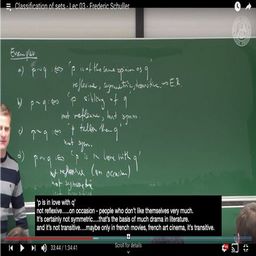 Classification of sets - Lec 03 - Frederic Schuller
Examples
a) p~q :⇔ 'p is of the same opinion as q'
reflexive, symmetric, transitive → E.R.
b) p~q :⇔ 'p sibling of q'
not reflexive, but symm
c) p~q :⇔ 'p taller than q'
not sym.
d) p~q :⇔ 'p is in love with q'
not reflexive (on occasion)
not symmetric
'p is in love with q'
not reflexive....on occasion - people who don't like themselves very much.
It's certainly not symmetric....that's the basis of much drama in literature.
and it's not transitive....maybe only in french movies, french art cinema, it's transitive.
33:44 / 1:54:41
Scroll for details